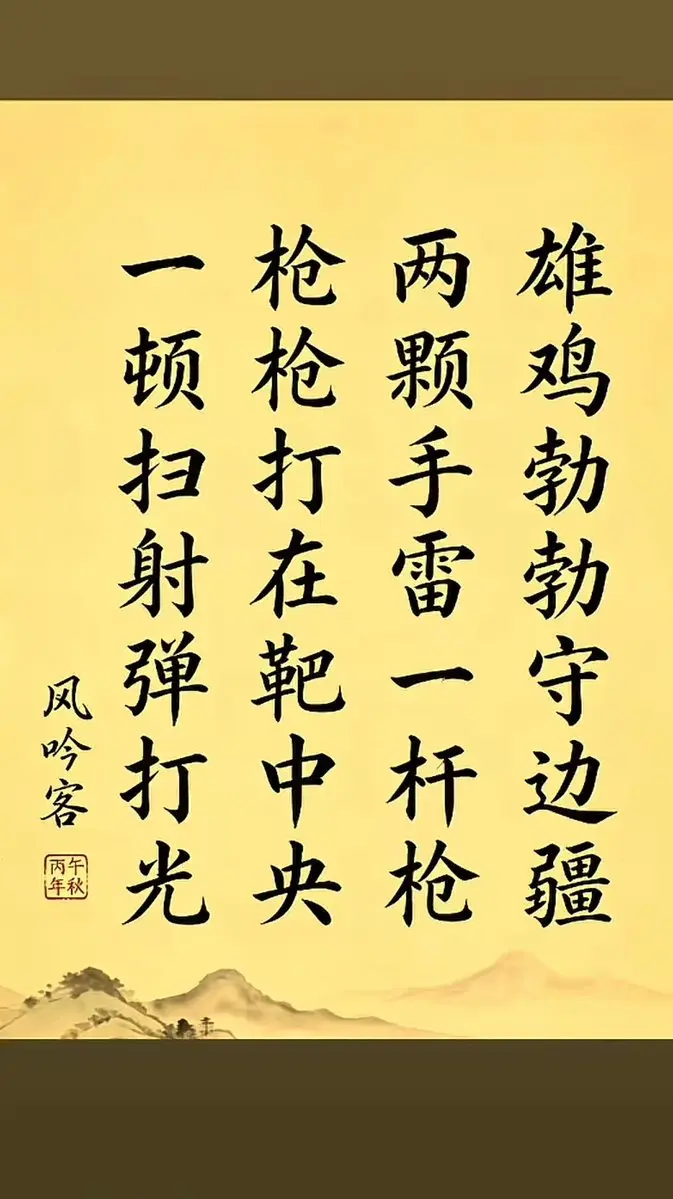 雄鸡勃勃守边疆
两颗手雷一杆枪
枪枪打在靶中央
一顿扫射弹打光
风吟客
丙午
年秋